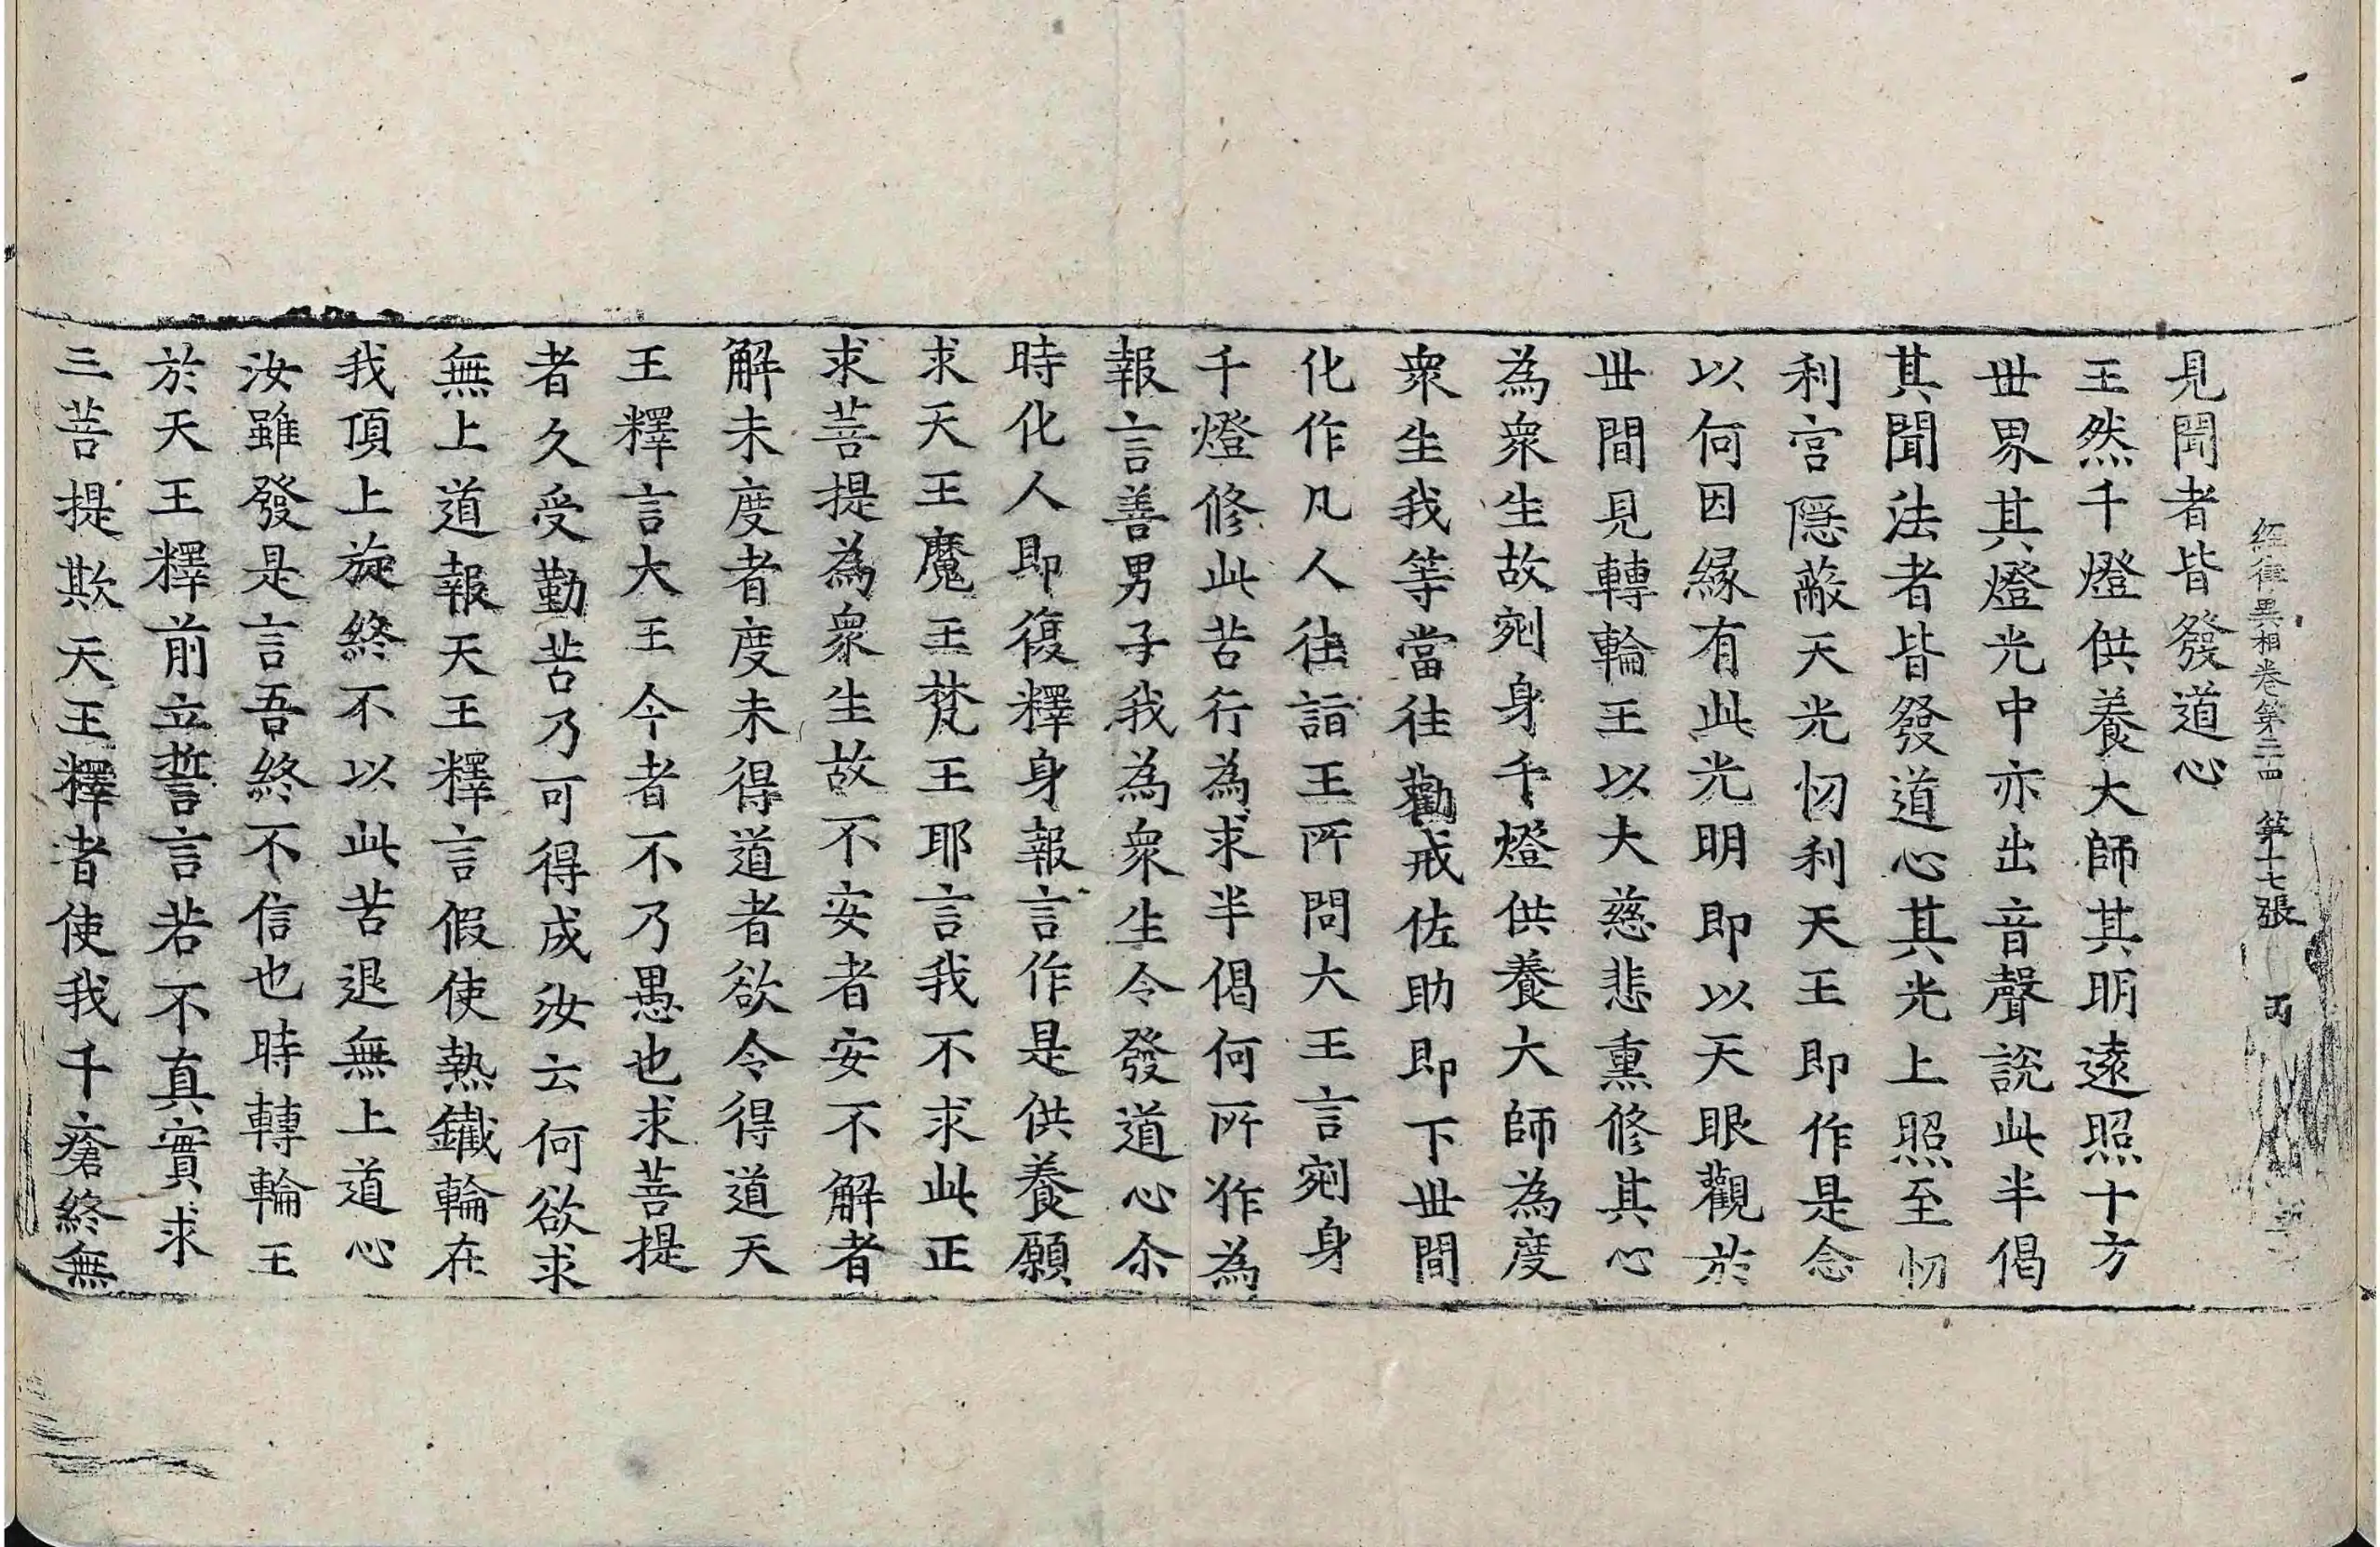 經律異相卷第二四 第十七張 丙
見聞者皆發道心
王然千燈供養大師其明遠照十方
世界其燈光中亦出音聲說此半偈
其聞法者皆發道心其光上照至忉
利宮隱蔽天光忉利天王即作是念
以何因緣有此光明即以天眼觀於
世間見轉輪王以大慈悲熏修其心
為眾生故剜身千燈供養大師為度
眾生我等當往勸戒佐助即下世間
化作凡人往詣王所問大王言剜身
千燈修此苦行為求半偈何所作為
報言善男子我為眾生令發道心尒
時化人即復釋身報言作是供養願
求天王魔王梵王耶言我不求此正
求菩提為眾生故不安者安不解者
解未度者度未得道者欲令得道天
王釋言大王今者不乃愚也求菩提
者久受勤苦乃可得成汝云何欲求
無上道報天王釋言假使熱鐵輪在
我頂上旋終不以此苦退無上道心
汝雖發是言吾終不信也時轉輪王
於天王釋前立誓言若不真實求
三菩提欺天王釋者使我千瘡終無